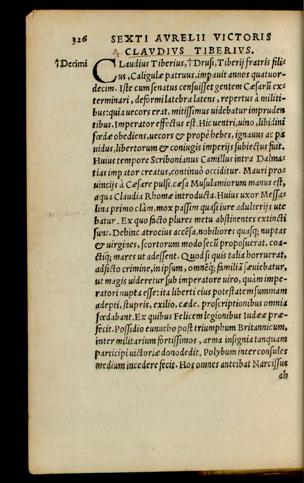 326 SEXTI AVRELII VICTORIS
CLAVDIVS TIBERIVS.
†Decimi CLaudius Tiberius, †Drusi, Tiberij fratris fili-
us, Caligulæ patruus, impauit annos quatuor-
decim. Iste cum senatus censuisset gentem Cæsarū ex-
terminari, deformi latebra latens, repertus à militi-
bus: quia uecors erat, mitissimus uidebatur impruden
tibus. Imperator effectus est. Hic uentri, uino, libidini
fœdæ obediens, uecors & propè hebes, ignauus ac pa
uidus, libertorum & coniugis imperijs subiectus fuit.
Huius tempore Scribonianus Camillus intra Dalma-
tias imp ator creatus, continuò occiditur. Mauri pro-
uincijs à Cæsare pulsi. cæsa Musulamiorum manus est,
aqua Claudia Rhomæ introducta. Huius uxor Messa-
lina primo clàm. mox passim quasi iure adulterijs ute
batur. Ex quo facto plures metu abstinentes extincti
sunt. Debinc atrocius accẽsa, nobiliores quasq; nuptas
& uirgines, scortorum modo secũ proposuerat, coa-
ctiq; mares ut adessent. Quod si quis talia horruerat,
adficto crimine, in ipsum, omnẽq; familiã sæuiebatur,
ut magis uideretur sub imperatore uiro, quàm impe-
ratori nupta esse: ita liberti eius potestatem summam
adepti, stupris, exilio, cæde, proscriptionibus omnia
fœdabant. Ex quibus Felicem legionibus Iudææ præ-
fecit. Possidio eunucho post triumphum Britannicum,
inter militarium fortissimos, arma insignia tanquam
participi uictoriæ dono dedit. Polybum inter consules
medium incedere fecit. Hos omnes anteibat Narcissus
ab